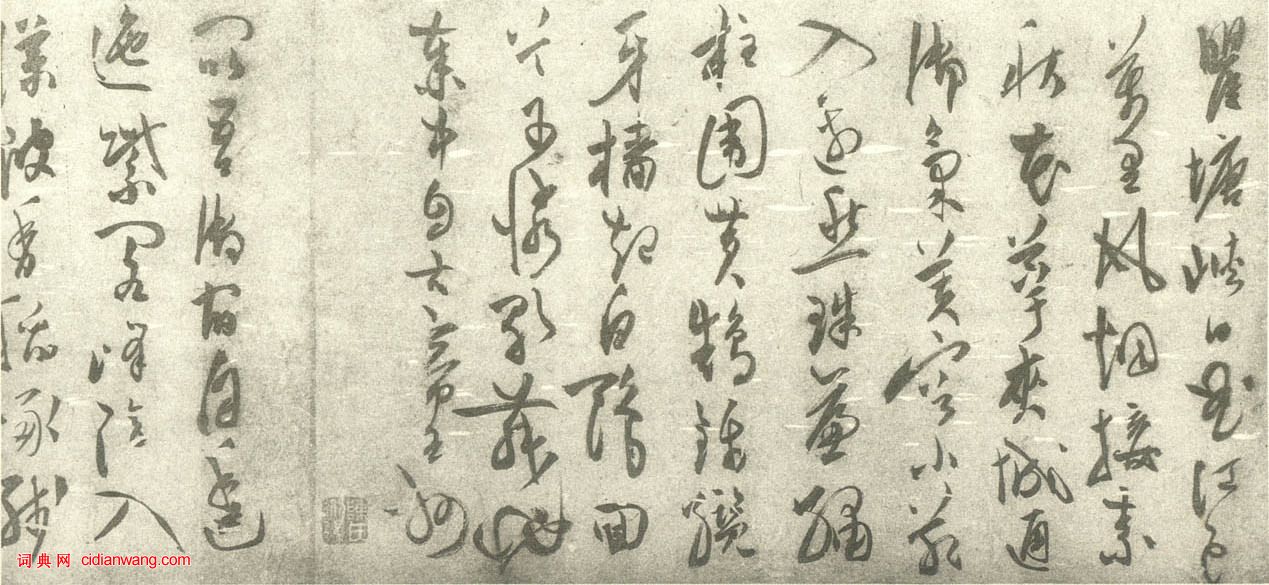 瞿塘峽口曲江頭
萬里風烟接素
秋花萼夾城通
御氣芙容小苑
入邊愁珠簾繡
柱圍黃鵠錦纜
牙檣起白鷗回
首可憐歌舞地
秦中自古帝王州
昆吾御宿自逶
迤紫閣峰陰入
渼陂香稻啄殘
词典网 cidianwang.com